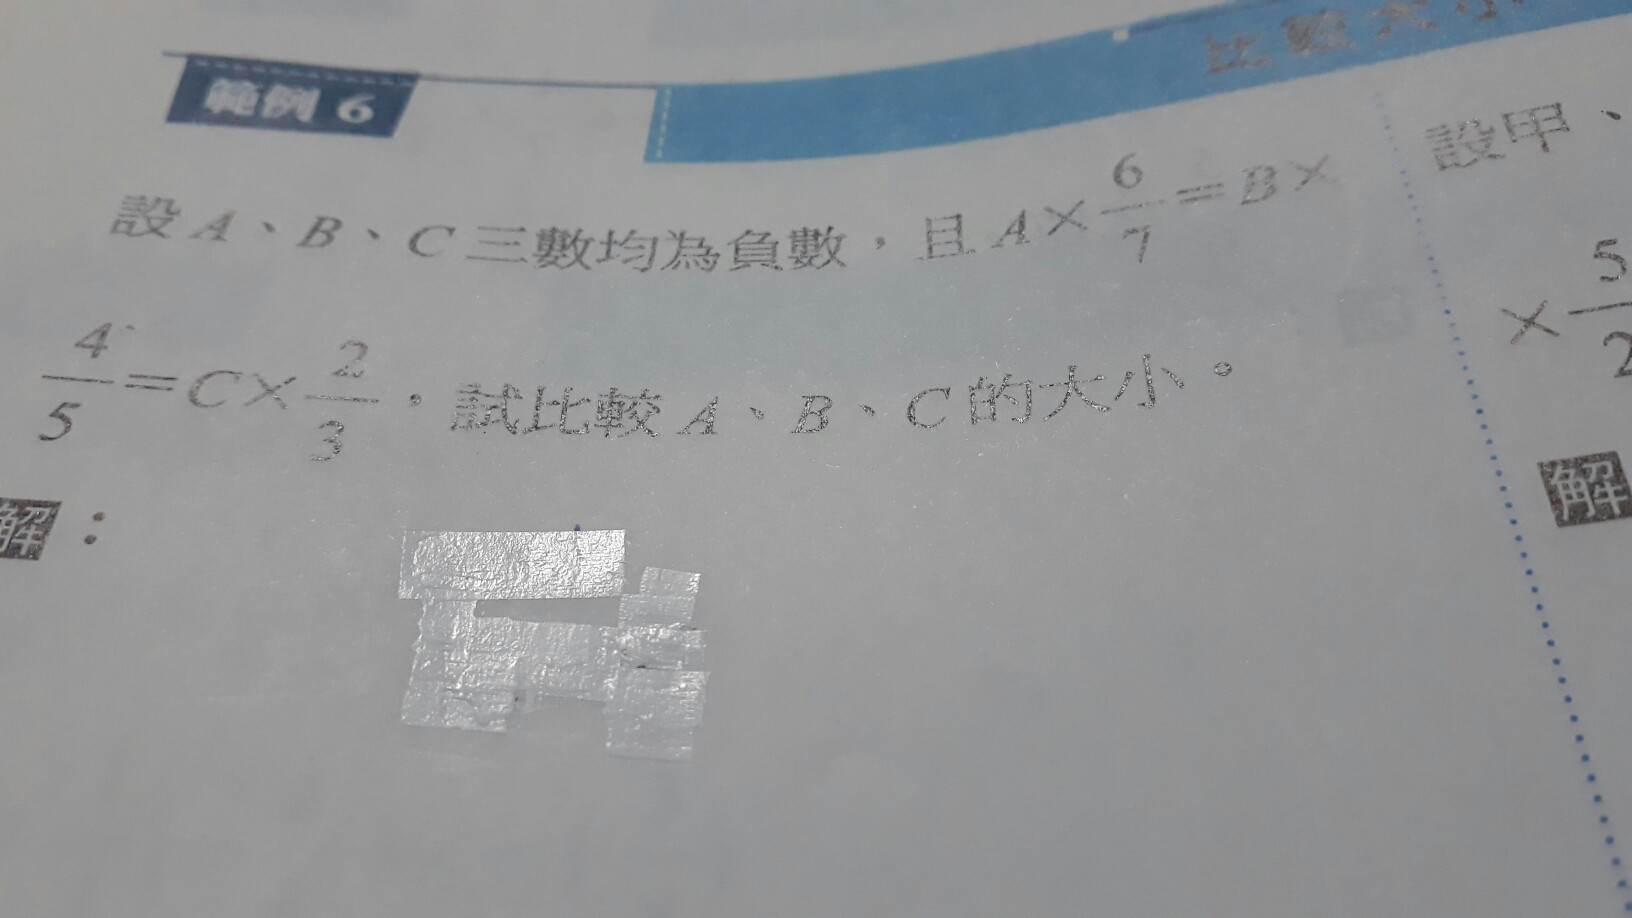 比較大小
範例 6
設 A、B、C 三數均為負數，且 A×6/7=B×
4/5=C×2/3，試比較 A、B、C 的大小。
解：
設甲、
×5/2
解